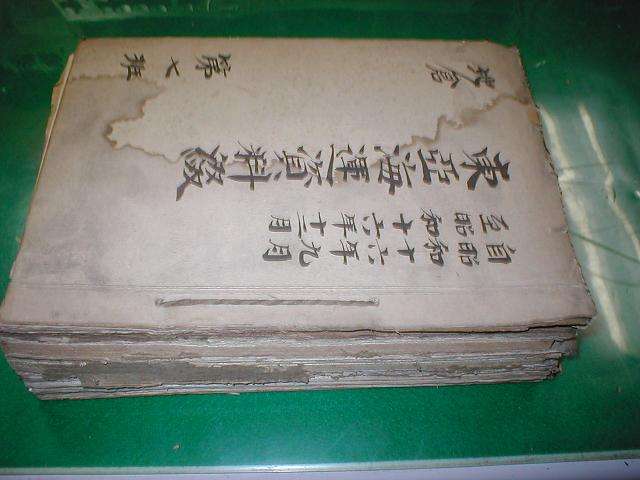 自昭和十六年九月
至昭和十六年十二月
東亞海運資料綴
倉 第七班